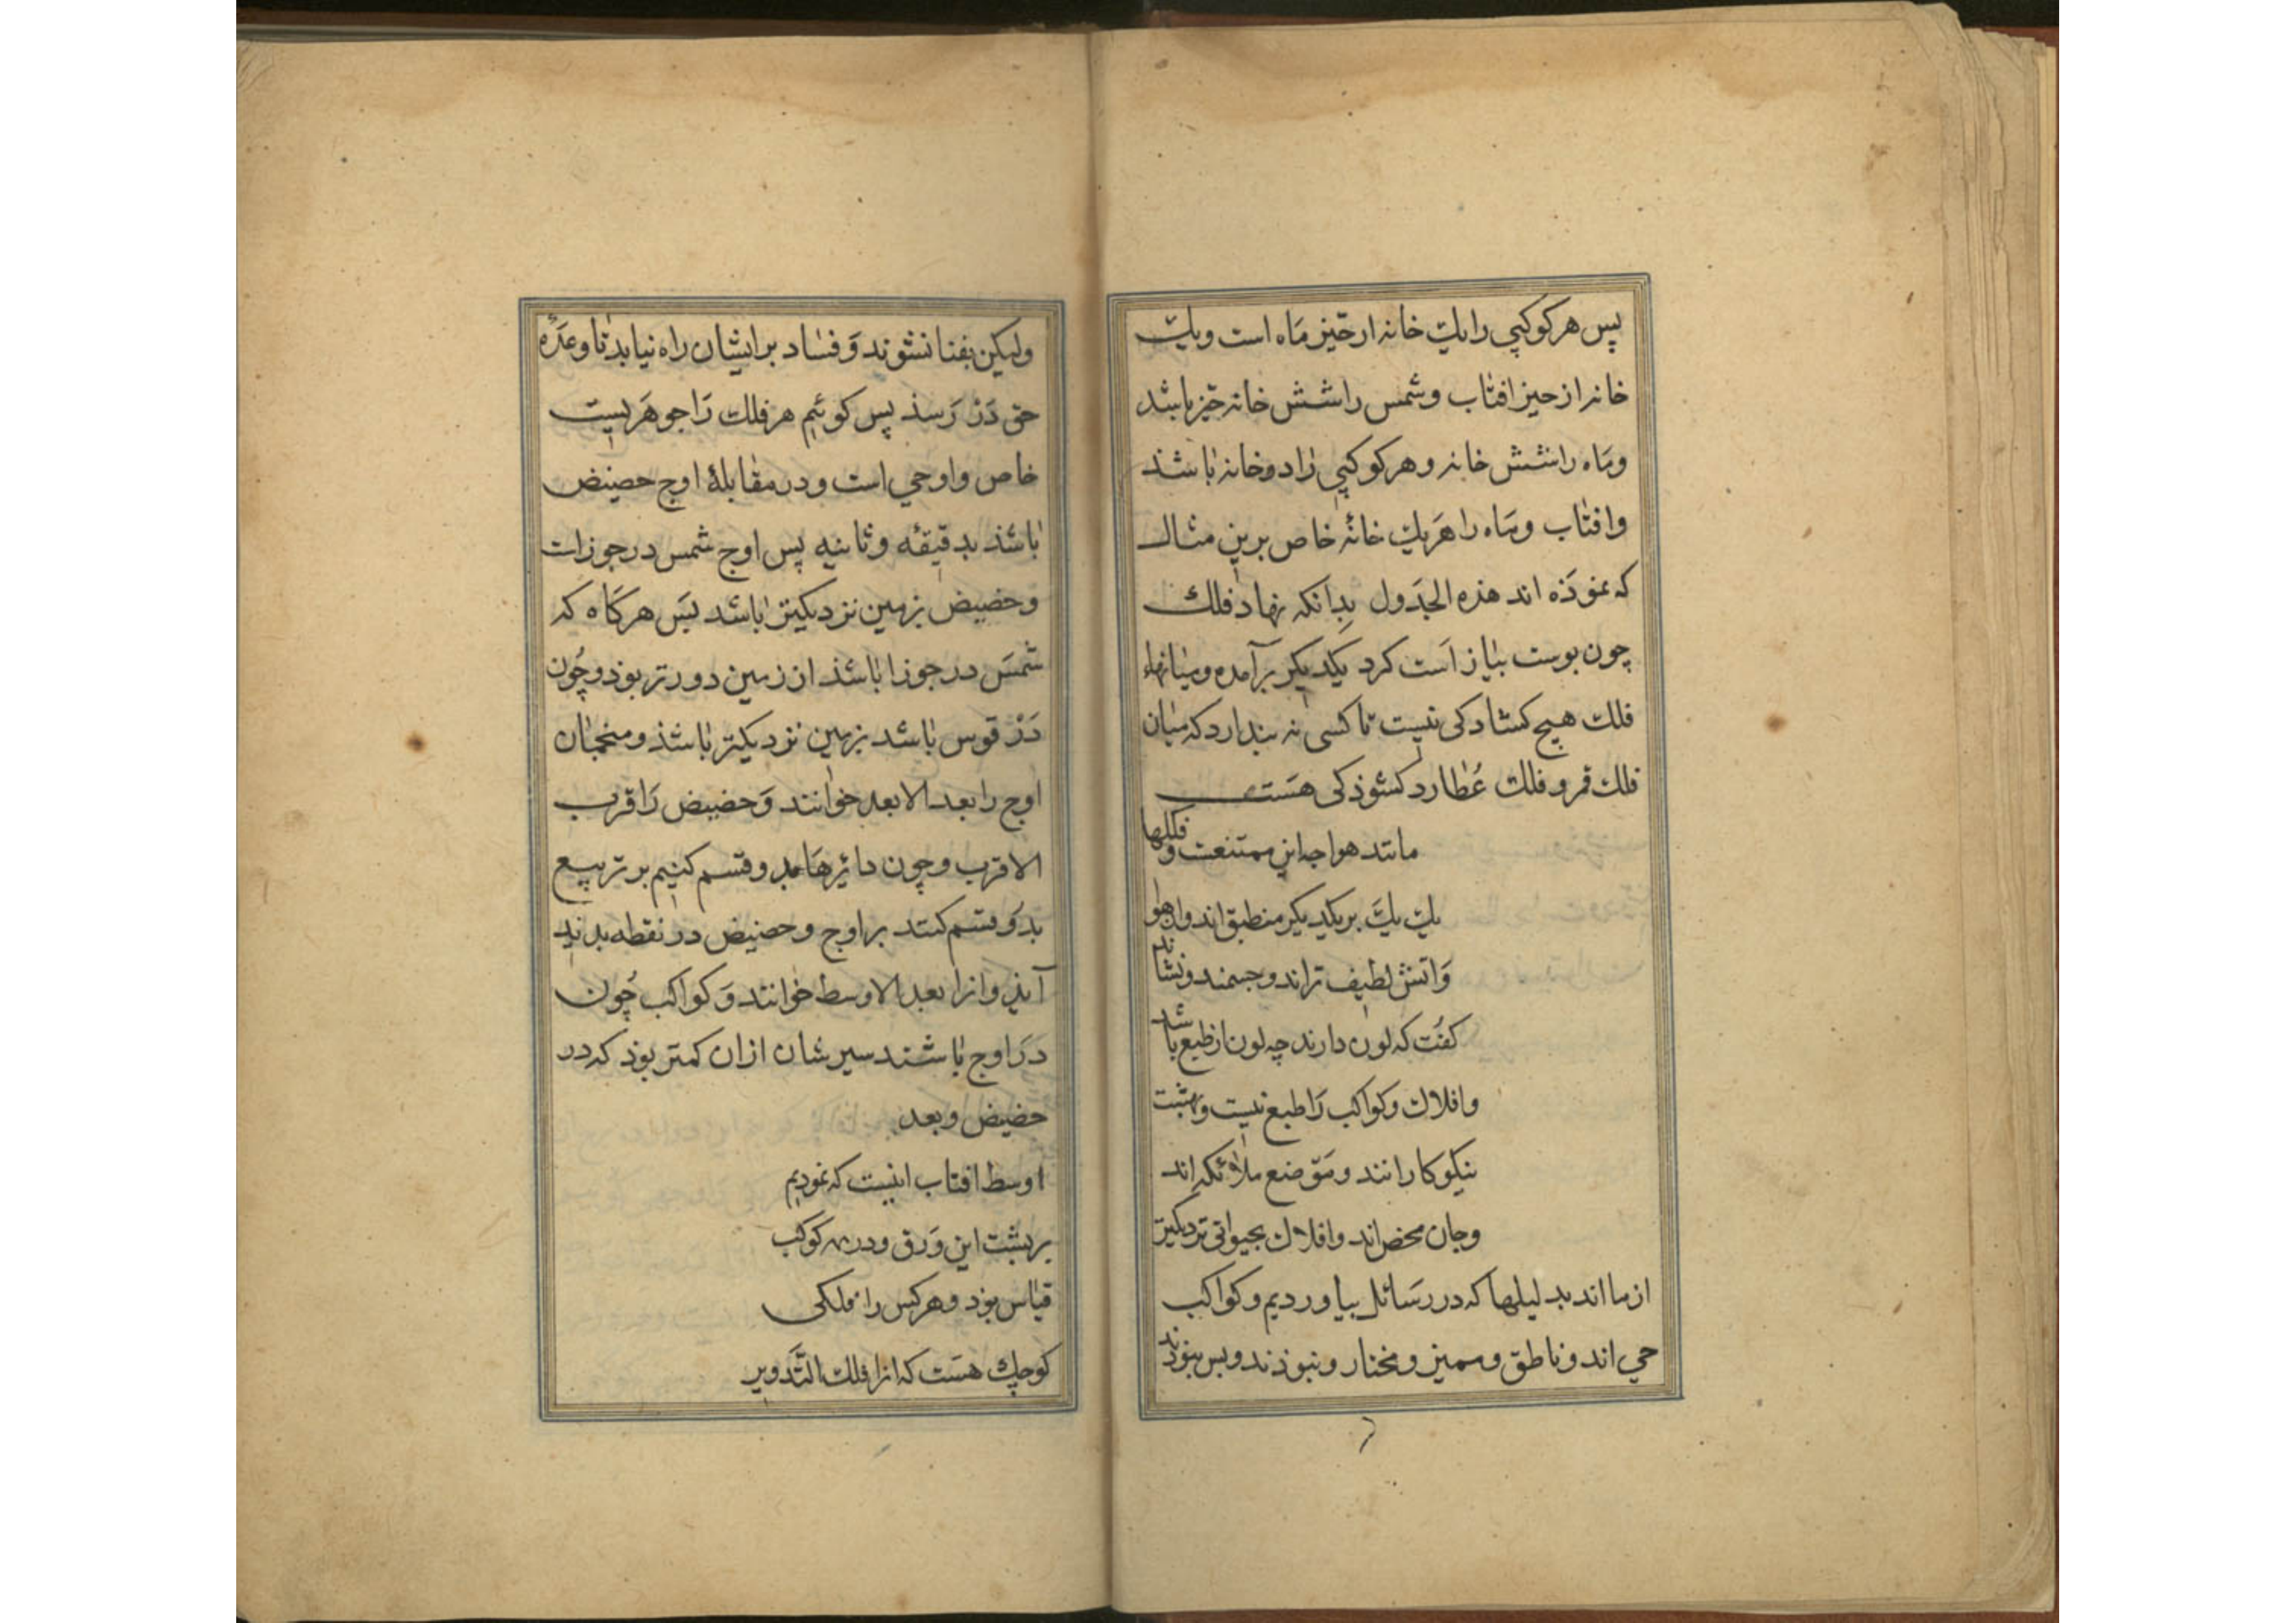 پس هر کوکبی را یک خانه از حیز ماه است و یک
خانه از حیز افتاب و شمس را شش خانه حیز باشد
و ماه را شش خانه و هر کوکبی را دو خانه باشذ
وافتاب و ماه را هر یک خانهٔ خاص برین مثال
که نموذه اند هذه الجدول بدانکه نهاد فلک
چون پوست پیاز است کرد یکدیکر برآمده و میانهاء
فلک هیچ کشادکی نیست تا کسی نه پندارد که میان
فلک قمر و فلک عطارد کشوذکی هست
مانند هوا چه این ممتنعست و فلکها
یک یک بر یکدیکر منطبق اند و از هوا
و اتش لطیف تر اند و جسمند و نشاند
کفت که لون دارند چه لون از طبع باشد
وافلاک و کواکب را طبع نیست و بهشت
نیکوکارانند و موضع ملائکه اند
و جان محض اند و افلاک بحیواتی نزدیکتر
از ما اند بدلیلها که در رسائل بیاوردیم و کواکب
حی اند و ناطق و ممیز و مختار و نبوذند و پس ببوذند
ولیکن بفنا نشوند و فساد بر ایشان راه نیابد تا وعدهٔ
حق در رسذ پس کوئیم هر فلک را جوهریست
خاص و اوجی است و در مقابلهٔ اوج حضیض
باشذ بدقیقه و ثانیه پس اوج شمس در جوزاست
و حضیض بزمین نزدیکتر باشد پس هر کاه که
شمس در جوزا باشذ از زمین دورتر بوذ و چون
در قوس باشد بزمین نزدیکتر باشذ و منجمان
اوج را بعد الابعد خوانند و حضیض را قرب
الاقرب و چون دائرها بدو قسم کنیم بر تربیع
بدو قسم کنند بر اوج و حضیض در نقطه پدید
آیذ و انرا بعد الاوسط خوانند و کواکب چون
در اوج باشند سیرشان ازان کمتر بوذ که در
حضیض و بعد
اوسط افتاب اینست که نمودیم
بر پشت این ورق و در کوکب
قیاس بوذ و هر کس را فلکی
کوچک هست که انرا فلک التدویر